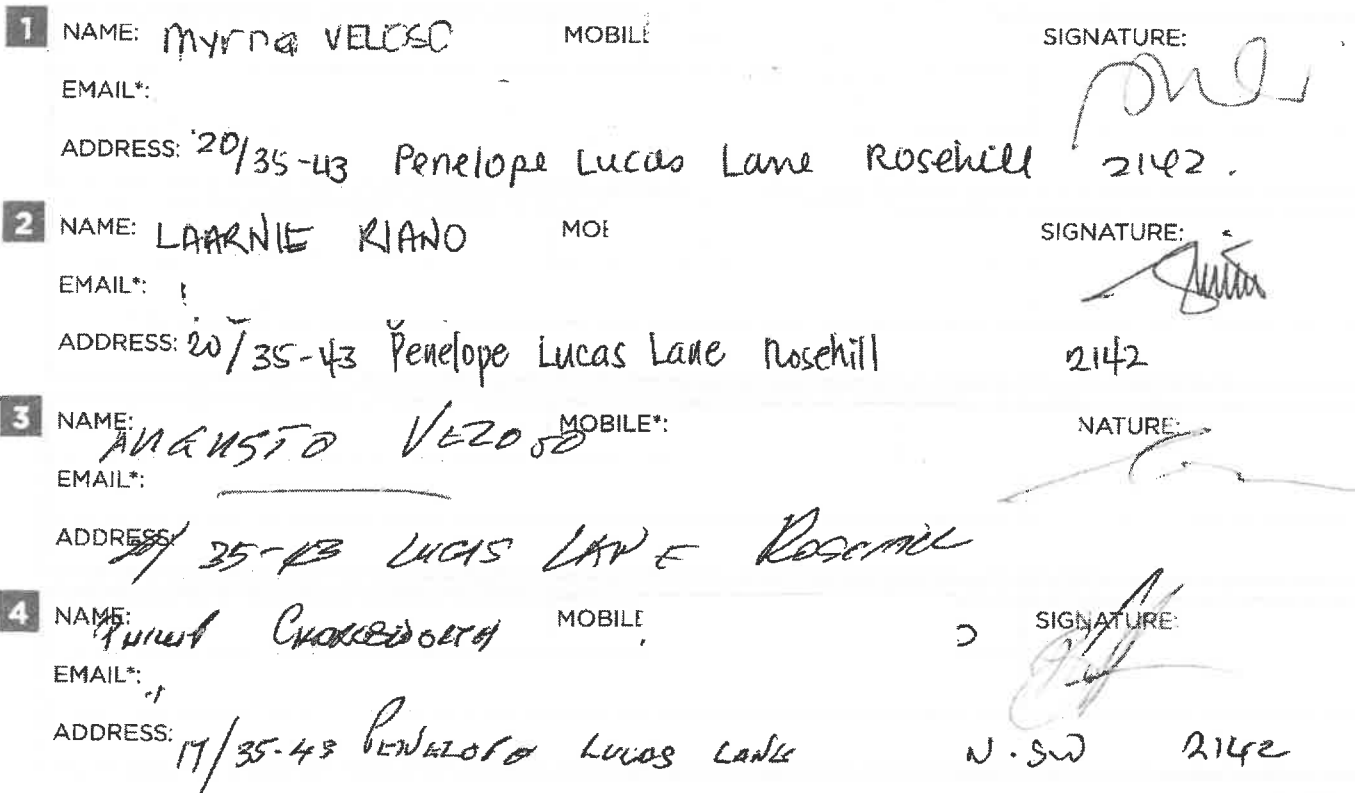 1 NAME: Myrna VELOSO MOBILE SIGNATURE:
EMAIL*:
ADDRESS: 20/35-43 Penelope Lucas Lane Rosehill 2142.
2 NAME: LAARNIE RIANO MOB SIGNATURE:
EMAIL*:
ADDRESS: 20/35-43 Penelope Lucas Lane Rosehill 2142
3 NAME: AUGUSTO VELOSO MOBILE*: NATURE:
EMAIL*:
ADDRESS: 20/35-43 LUCAS LANE ROSEHILL
4 NAME: MOBILE SIGNATURE:
EMAIL*:
ADDRESS: 17/35-43 PENELOPE LUCAS LANE N.SW 2142